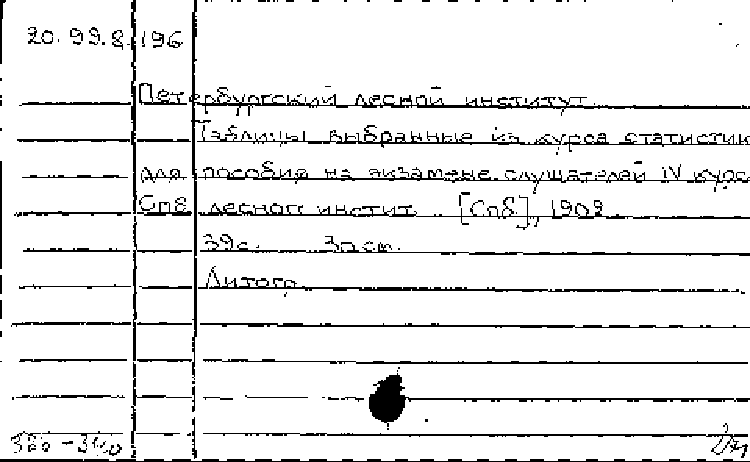 20.99.8.196
Петербургский лесной институт
Таблицы выбранные из курса статистик
для пособия на экзамене слушателей IV курс
Спб лесного инстит. [Спб], 1902.
39с. 30 см.
Литогр.